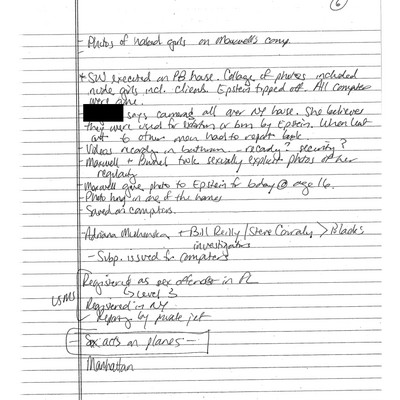 6
- Photos of naked girls on Maxwell's comp.
+ SW executed on PB house. Collage of photos included
nude girls incl. clients. Epstein tipped off. All computers
were gone.
says cameras all over NY house. She believes
they were used for by Epstein. When
to other men had to report back.
- Videos recording in bathroom - recording? security?
- Maxwell + took sexually explicit photos of her
regularly
- Maxwell gave photo to Epstein for bday @ age 16.
- Photo hung in one of the homes
- Saved on computers.
- Adriana + Bill Reilly / Steve > Black's
investigators
- Subp. issued for computers
Registered as per offender in FL
↳ Level 3
USMS
Registered in NY
- Reporting by private jet
- Sex acts on planes -
Manhattan